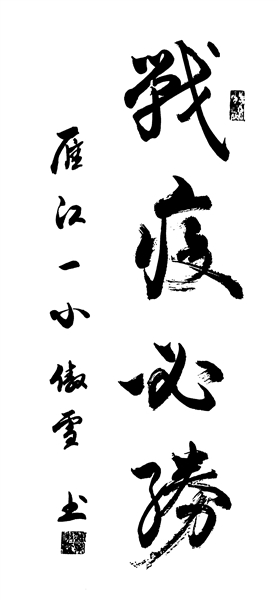 戰疫必勝
雁江一小 傲雪 书